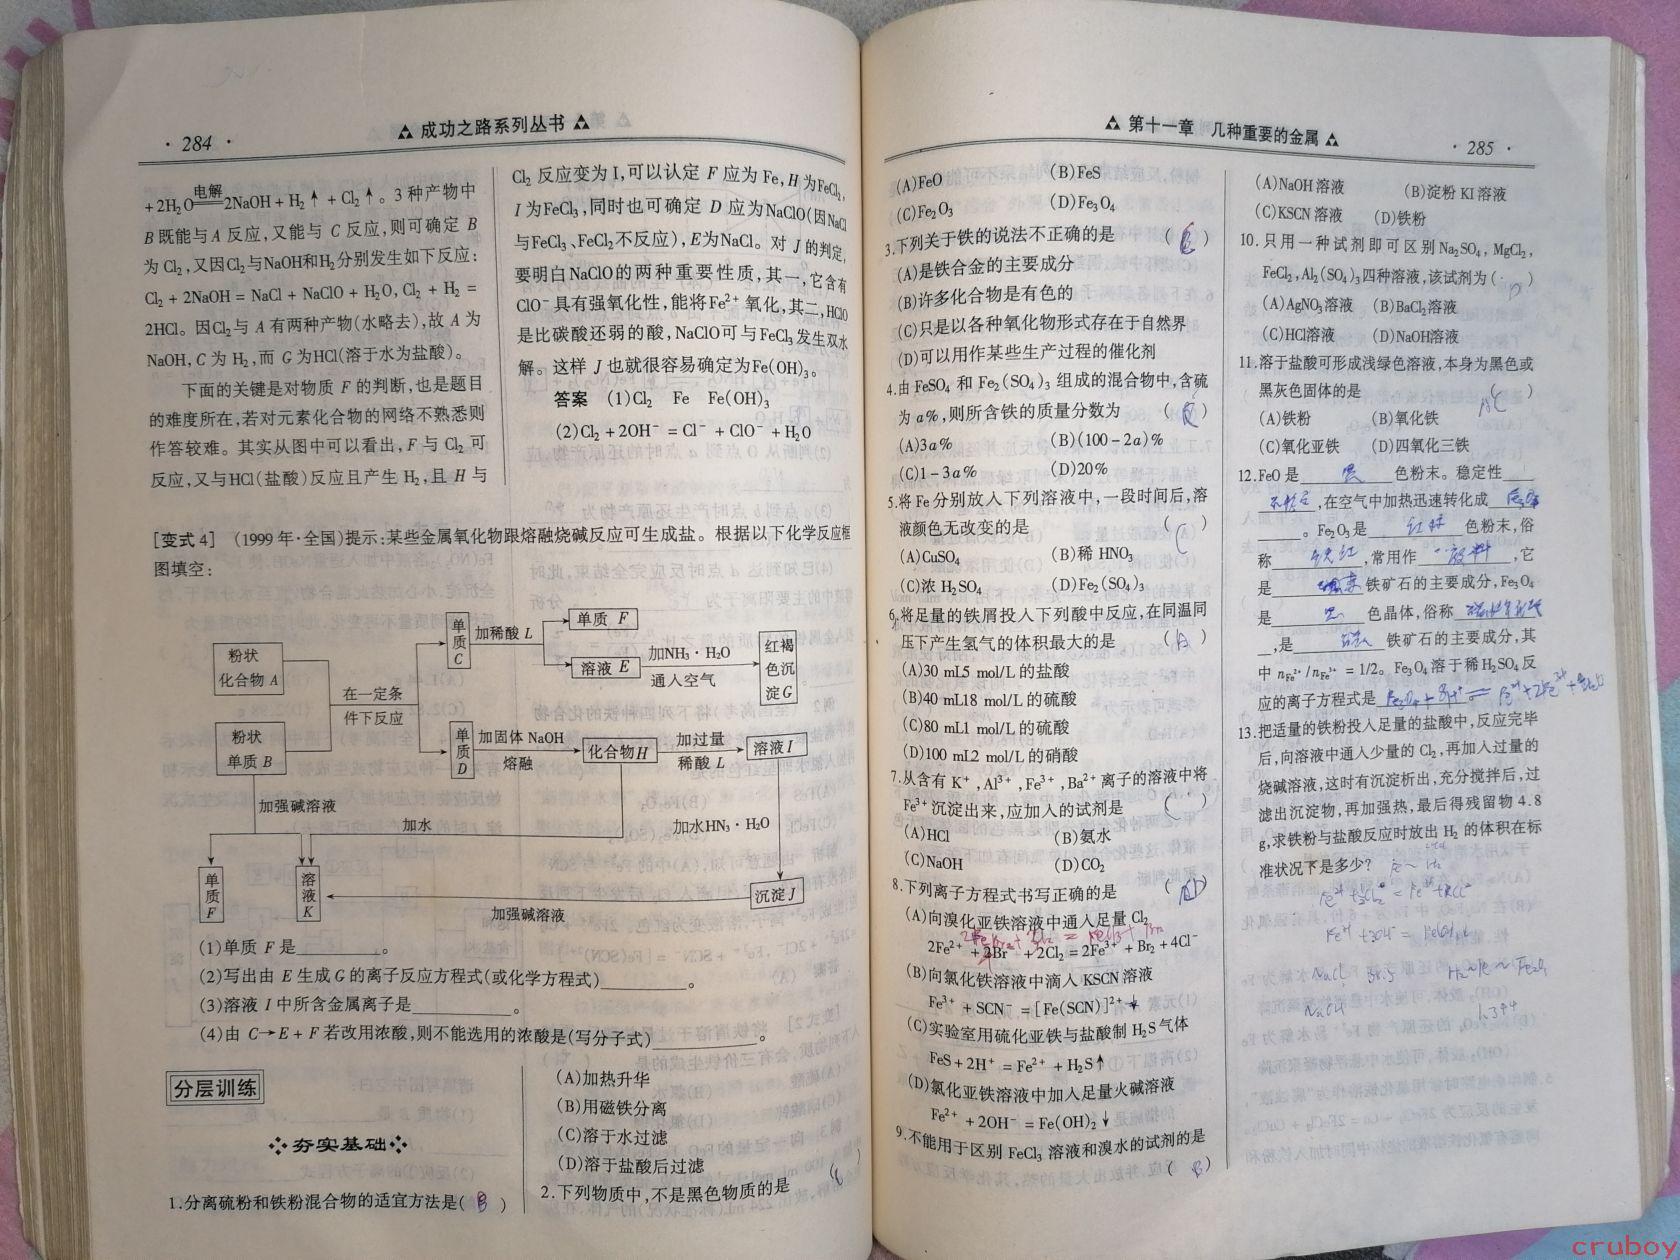 · 284 ·
成功之路系列丛书
+2H₂O 电解 2NaOH + H₂↑ + Cl₂↑。3种产物中
B既能与A反应,又能与C反应,则可确定B
为Cl₂,又因Cl₂与NaOH和H₂分别发生如下反应:
Cl₂ + 2NaOH = NaCl + NaClO + H₂O, Cl₂ + H₂ =
2HCl。因Cl₂与A有两种产物(水略去),故A为
NaOH,C为H₂,而G为HCl(溶于水为盐酸)。
下面的关键是对物质F的判断,也是题目
的难度所在,若对元素化合物的网络不熟悉则
作答较难。其实从图中可以看出,F与Cl₂可
反应,又与HCl(盐酸)反应且产生H₂,且H与
Cl₂反应变为I,可以认定F应为Fe,H为FeCl₂,
I为FeCl₃,同时也可确定D应为NaClO(因NaCl
与FeCl₃、FeCl₂不反应),E为NaCl。对J的判定,
要明白NaClO的两种重要性质,其一,它含有
ClO⁻具有强氧化性,能将Fe²⁺氧化,其二,HClO
是比碳酸还弱的酸,NaClO可与FeCl₃发生双水
解。这样J也就很容易确定为Fe(OH)₃。
答案 (1)Cl₂ Fe Fe(OH)₃
(2)Cl₂ + 2OH⁻ = Cl⁻ + ClO⁻ + H₂O
[变式4] (1999年·全国)提示:某些金属氧化物跟熔融烧碱反应可生成盐。根据以下化学反应框
图填空:
粉状
化合物A
粉状
单质B
在一定条
件下反应
单质C
加稀酸L
单质 F
溶液 E
加NH₃·H₂O
通入空气
红褐
色沉
淀G
单质D
加固体NaOH
熔融
化合物H
加过量
稀酸L
溶液I
加强碱溶液
加水
加水HN₃·H₂O
单质F
溶液K
沉淀J
加强碱溶液
(1)单质F是________。
(2)写出由E生成G的离子反应方程式(或化学方程式)________。
(3)溶液I中所含金属离子是________。
(4)由C→E+F若改用浓酸,则不能选用的浓酸是(写分子式)________。
分层训练
夯实基础
1.分离硫粉和铁粉混合物的适宜方法是( B )
(A)加热升华
(B)用磁铁分离
(C)溶于水过滤
(D)溶于盐酸后过滤
2.下列物质中,不是黑色物质的是 ( )
第十一章 几种重要的金属
· 285 ·
(A)FeO (B)FeS
(C)Fe₂O₃ (D)Fe₃O₄
3.下列关于铁的说法不正确的是 ( )
(A)是铁合金的主要成分
(B)许多化合物是有色的
(C)只是以各种氧化物形式存在于自然界
(D)可以用作某些生产过程的催化剂
4.由FeSO₄和Fe₂(SO₄)₃组成的混合物中,含硫
为a%,则所含铁的质量分数为 ( )
(A)3a% (B)(100-2a)%
(C)1-3a% (D)20%
5.将Fe分别放入下列溶液中,一段时间后,溶
液颜色无改变的是 ( C )
(A)CuSO₄ (B)稀HNO₃
(C)浓H₂SO₄ (D)Fe₂(SO₄)₃
6.将足量的铁屑投入下列酸中反应,在同温同
压下产生氢气的体积最大的是 ( A )
(A)30 mL5 mol/L的盐酸
(B)40 mL18 mol/L的硫酸
(C)80 mL1 mol/L的硫酸
(D)100 mL2 mol/L的硝酸
7.从含有K⁺、Al³⁺、Fe³⁺、Ba²⁺离子的溶液中将
Fe³⁺沉淀出来,应加入的试剂是 ( )
(A)HCl (B)氨水
(C)NaOH (D)CO₂
8.下列离子方程式书写正确的是 ( )
(A)向溴化亚铁溶液中通入足量Cl₂
2Fe²⁺ + 2Br⁻ + 2Cl₂ = 2Fe³⁺ + Br₂ + 4Cl⁻
(B)向氯化铁溶液中滴入KSCN溶液
Fe³⁺ + SCN⁻ = [Fe(SCN)]²⁺↓
(C)实验室用硫化亚铁与盐酸制H₂S气体
FeS + 2H⁺ = Fe²⁺ + H₂S↑
(D)氯化亚铁溶液中加入足量火碱溶液
Fe²⁺ + 2OH⁻ = Fe(OH)₂↓
9.不能用于区别FeCl₃溶液和溴水的试剂的是
( B )
(A)NaOH溶液 (B)淀粉KI溶液
(C)KSCN溶液 (D)铁粉
10.只用一种试剂即可区别Na₂SO₄,MgCl₂,
FeCl₂,Al₂(SO₄)₃四种溶液,该试剂为( D )
(A)AgNO₃溶液 (B)BaCl₂溶液
(C)HCl溶液 (D)NaOH溶液
11.溶于盐酸可形成浅绿色溶液,本身为黑色或
黑灰色固体的是 ( AC )
(A)铁粉 (B)氧化铁
(C)氧化亚铁 (D)四氧化三铁
12.FeO是 黑 色粉末。稳定性
不稳定,在空气中加热迅速转化成
。Fe₂O₃是 红棕 色粉末,俗
称 铁红,常用作 ,它
是 铁矿石的主要成分,Fe₃O₄
是 黑 色晶体,俗称
,是 铁矿石的主要成分,其
中 nFe²⁺/nFe³⁺ = 1/2。Fe₃O₄溶于稀H₂SO₄反
应的离子方程式是
13.把适量的铁粉投入足量的盐酸中,反应完毕
后,向溶液中通入少量的Cl₂,再加入过量的
烧碱溶液,这时有沉淀析出,充分搅拌后,过
滤出沉淀物,再加强热,最后得残留物4.8
g,求铁粉与盐酸反应时放出H₂的体积在标
准状况下是多少?
cruboy